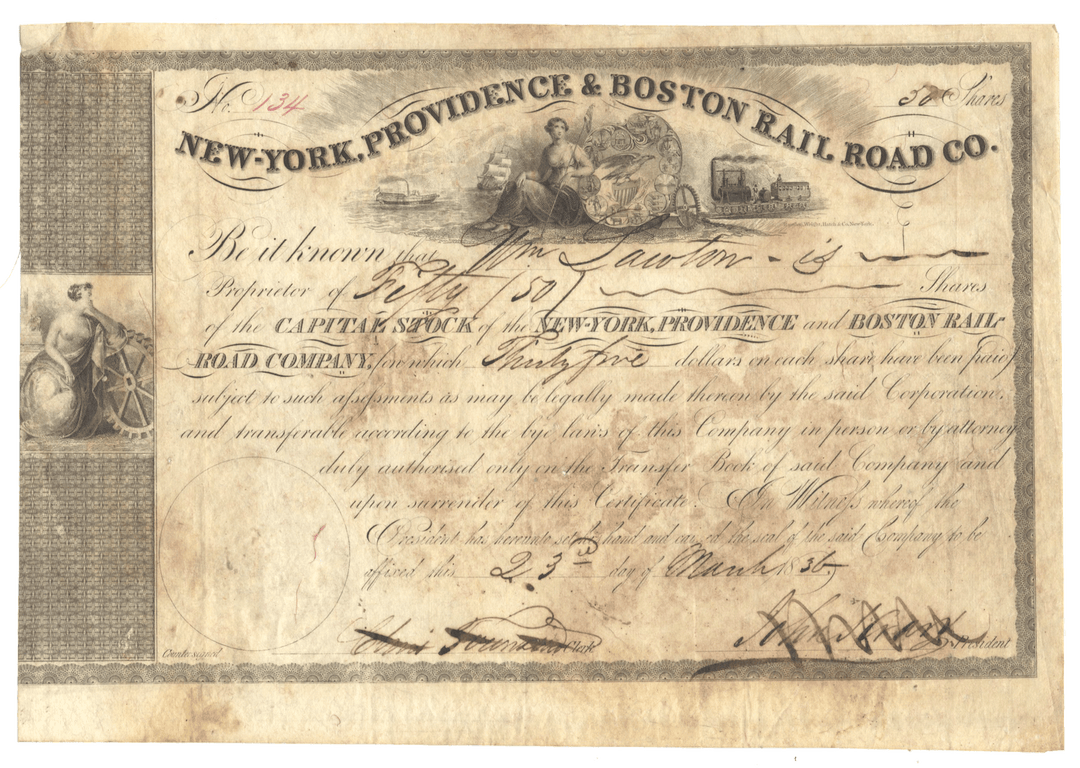 No. 134
50 Shares
NEW-YORK, PROVIDENCE & BOSTON RAIL ROAD CO.
Be it known that Wm Lawton - is
Proprietor of Fifty (50) Shares
of the CAPITAL STOCK of the NEW-YORK, PROVIDENCE and BOSTON RAIL-
ROAD COMPANY, for which Thirty five dollars on each share have been paid
subject to such assessments as may be legally made thereon by the said Corporation,
and transferable according to the bye laws of this Company in person or by attorney
duly authorised only on the Transfer Book of said Company and
upon surrender of this Certificate. In Witness whereof the
President has hereunto set his hand and caused the seal of the said Company to be
affixed this 23rd day of March 1836
Clerk
President
Countersigned